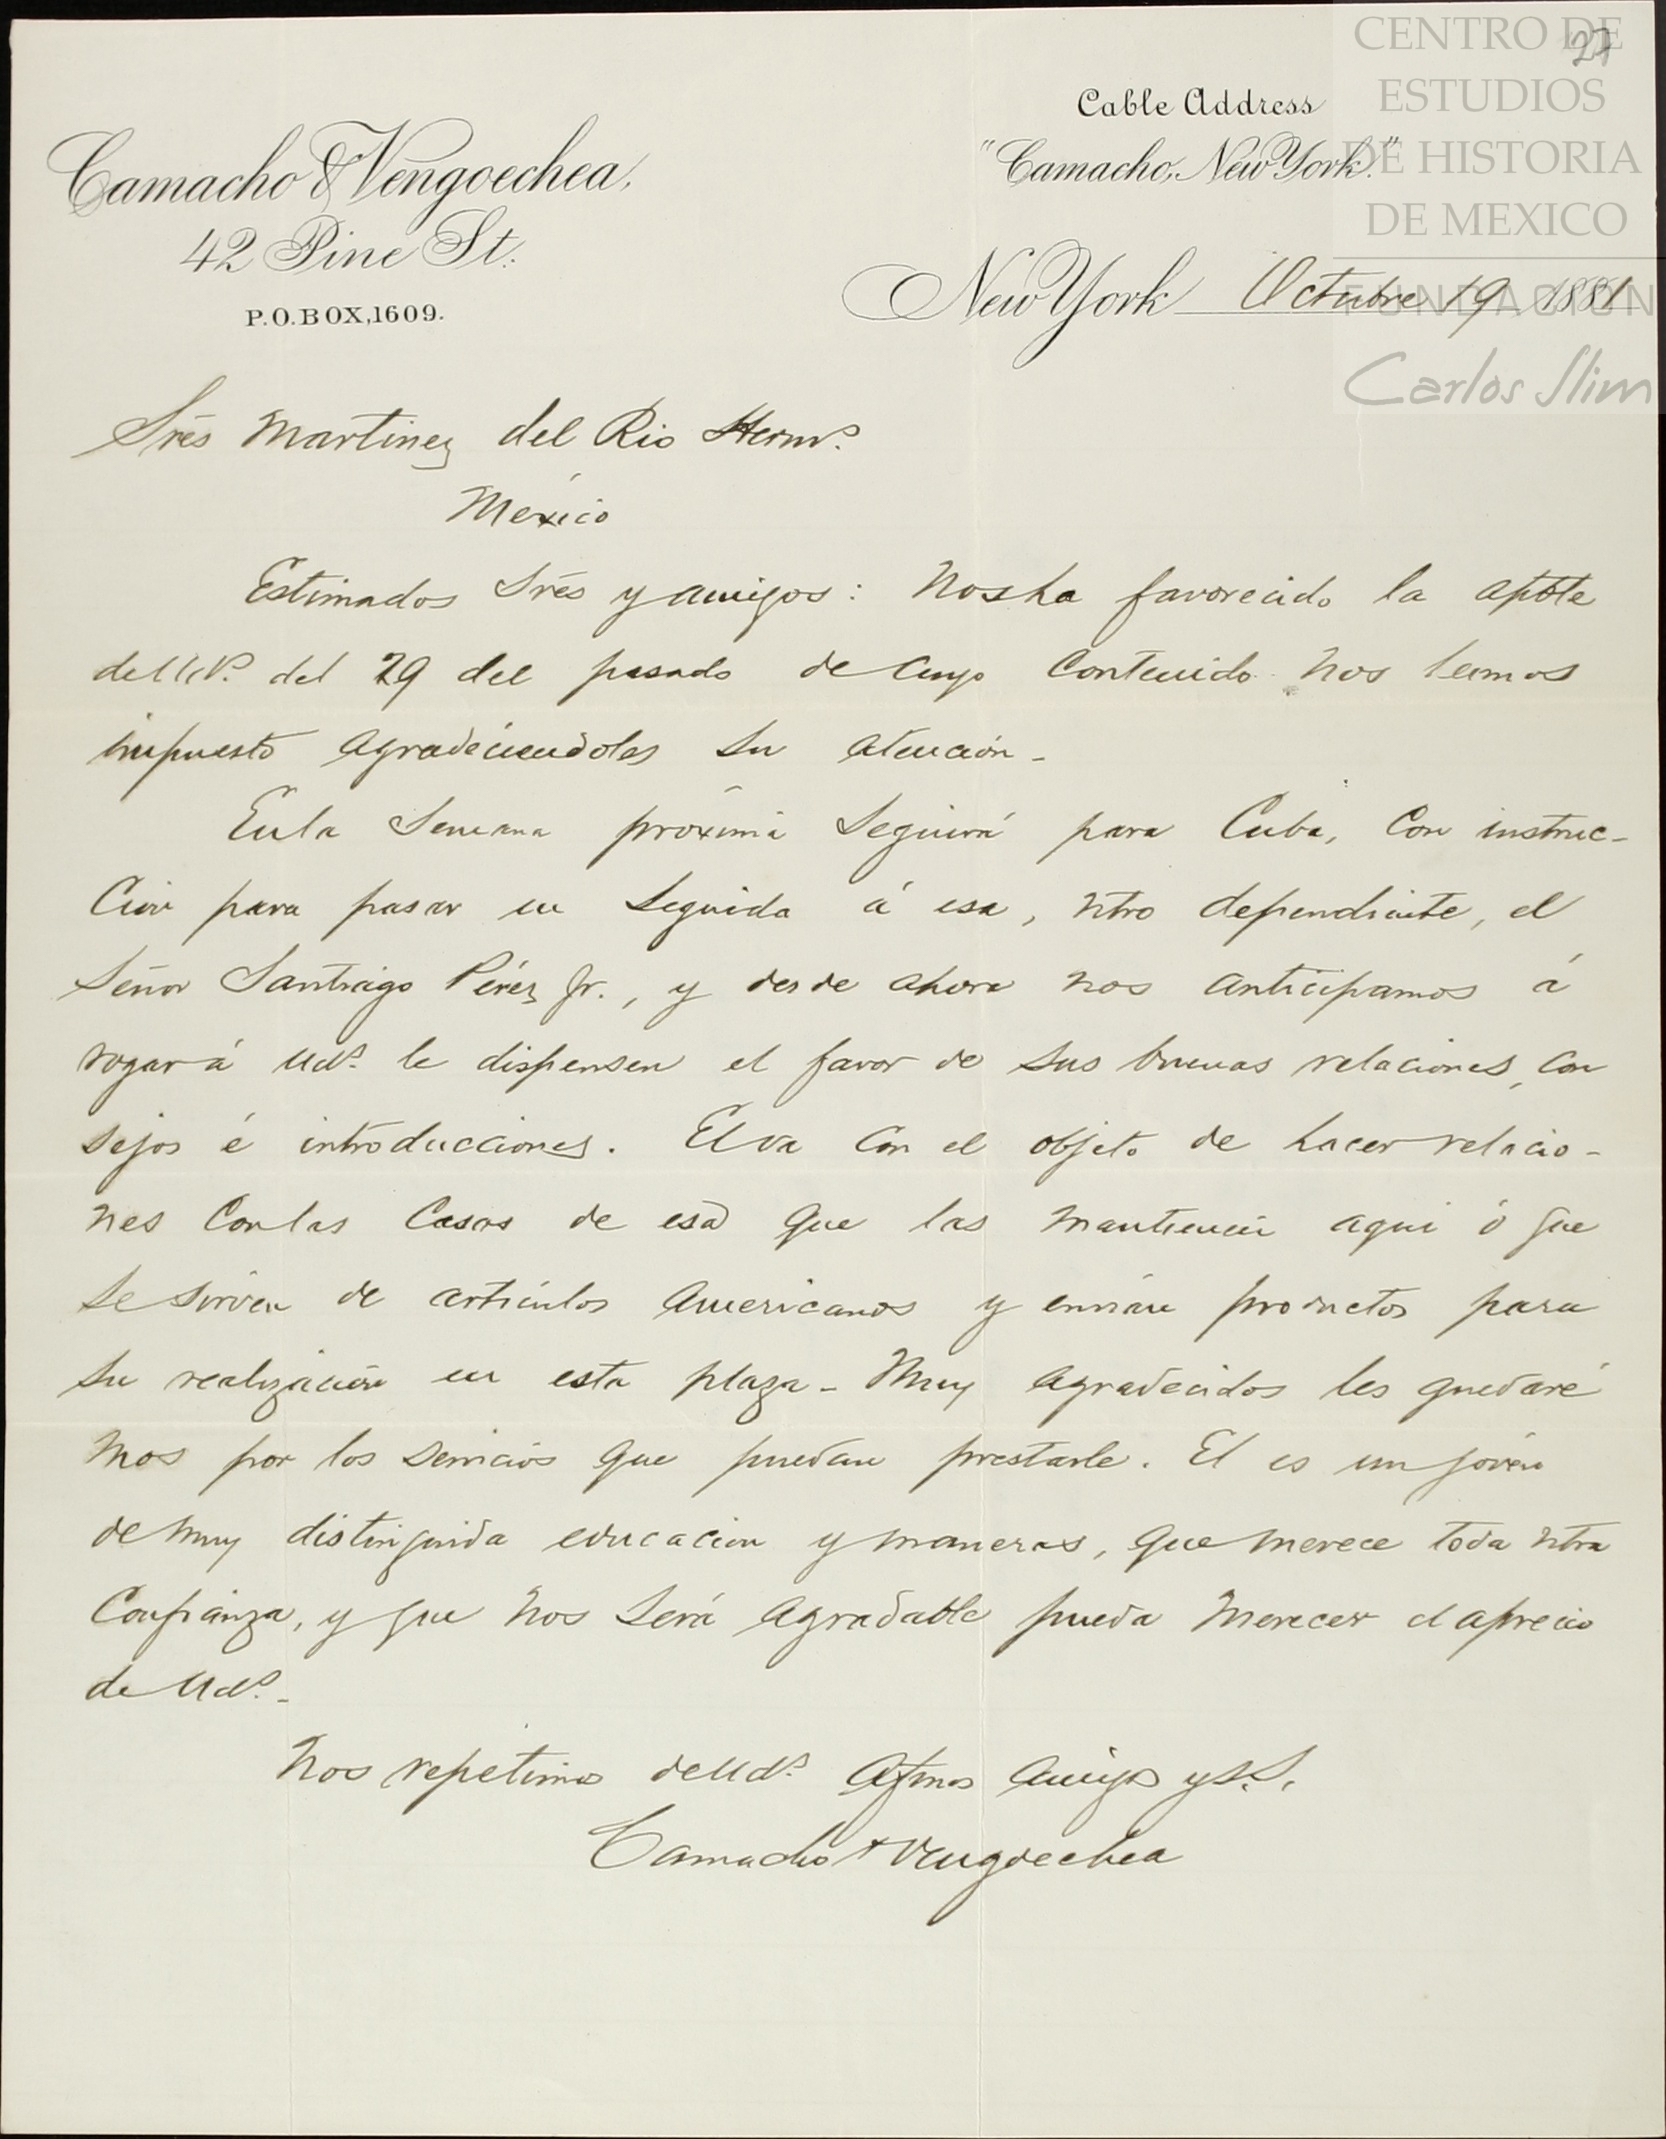 27
CENTRO DE
ESTUDIOS
DE HISTORIA
DE MEXICO
FUNDACION
Carlos Slim
Cable Address
"Camacho, New York."
Camacho & Vengoechea,
42 Pine St.
P.O.BOX,1609.
New York Octubre 19 1881
Srēs Martinez del Rio Hermos.
México
Estimados Srēs y amigos: Nos ha favorecido la apble
de Uds. del 29 del pasado de cuyo contenido nos hemos
impuesto agradeciendoles su atención_
En la semana próxima seguirá para Cuba, con instruc-
cion para pasar en seguida á esa, ntro dependiente, el
Señor Santiago Pérez Jr., y desde ahora nos anticipamos á
rogar á Uds. le dispensen el favor de sus buenas relaciones, con
sejos é introducciones. El va con el objeto de hacer relacio-
nes con las casas de esa que las mantienen aqui ó que
se sirven de artículos americanos y envían productos para
su realización en esta plaza_ Muy agradecidos les quedaré
mos por los servicios que puedan prestarle. El es un jóven
de muy distinguida educacion y maneras, que merece toda ntra
confianza, y que nos será agradable pueda merecer el aprecio
de Uds._
Nos repetimos de Uds. Afmos amigos y S.S.
Camacho & Vengoechea